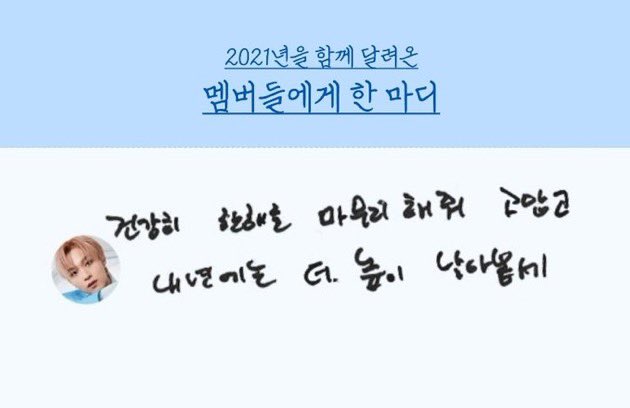 2021년을 함께 달려온
멤버들에게 한 마디
건강히 한해를 마무리 해줘 고맙고
내년에는 더. 높이 날아봅세